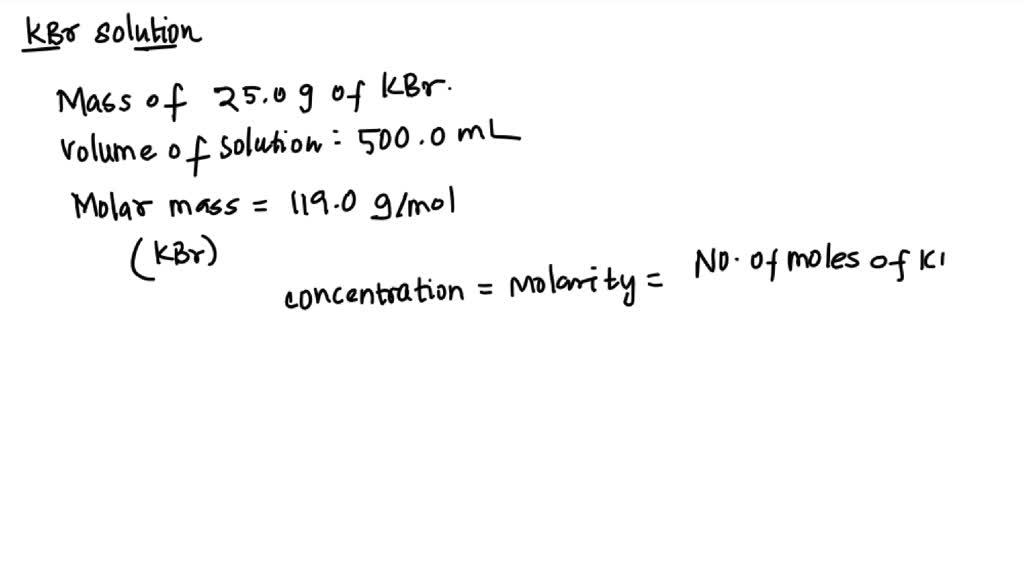 KBr solution
Mass of 25.0 g of KBr.
Volume of solution : 500.0 mL
Molar mass = 119.0 g/mol
(KBr)
concentration = Molarity = No. of moles of K